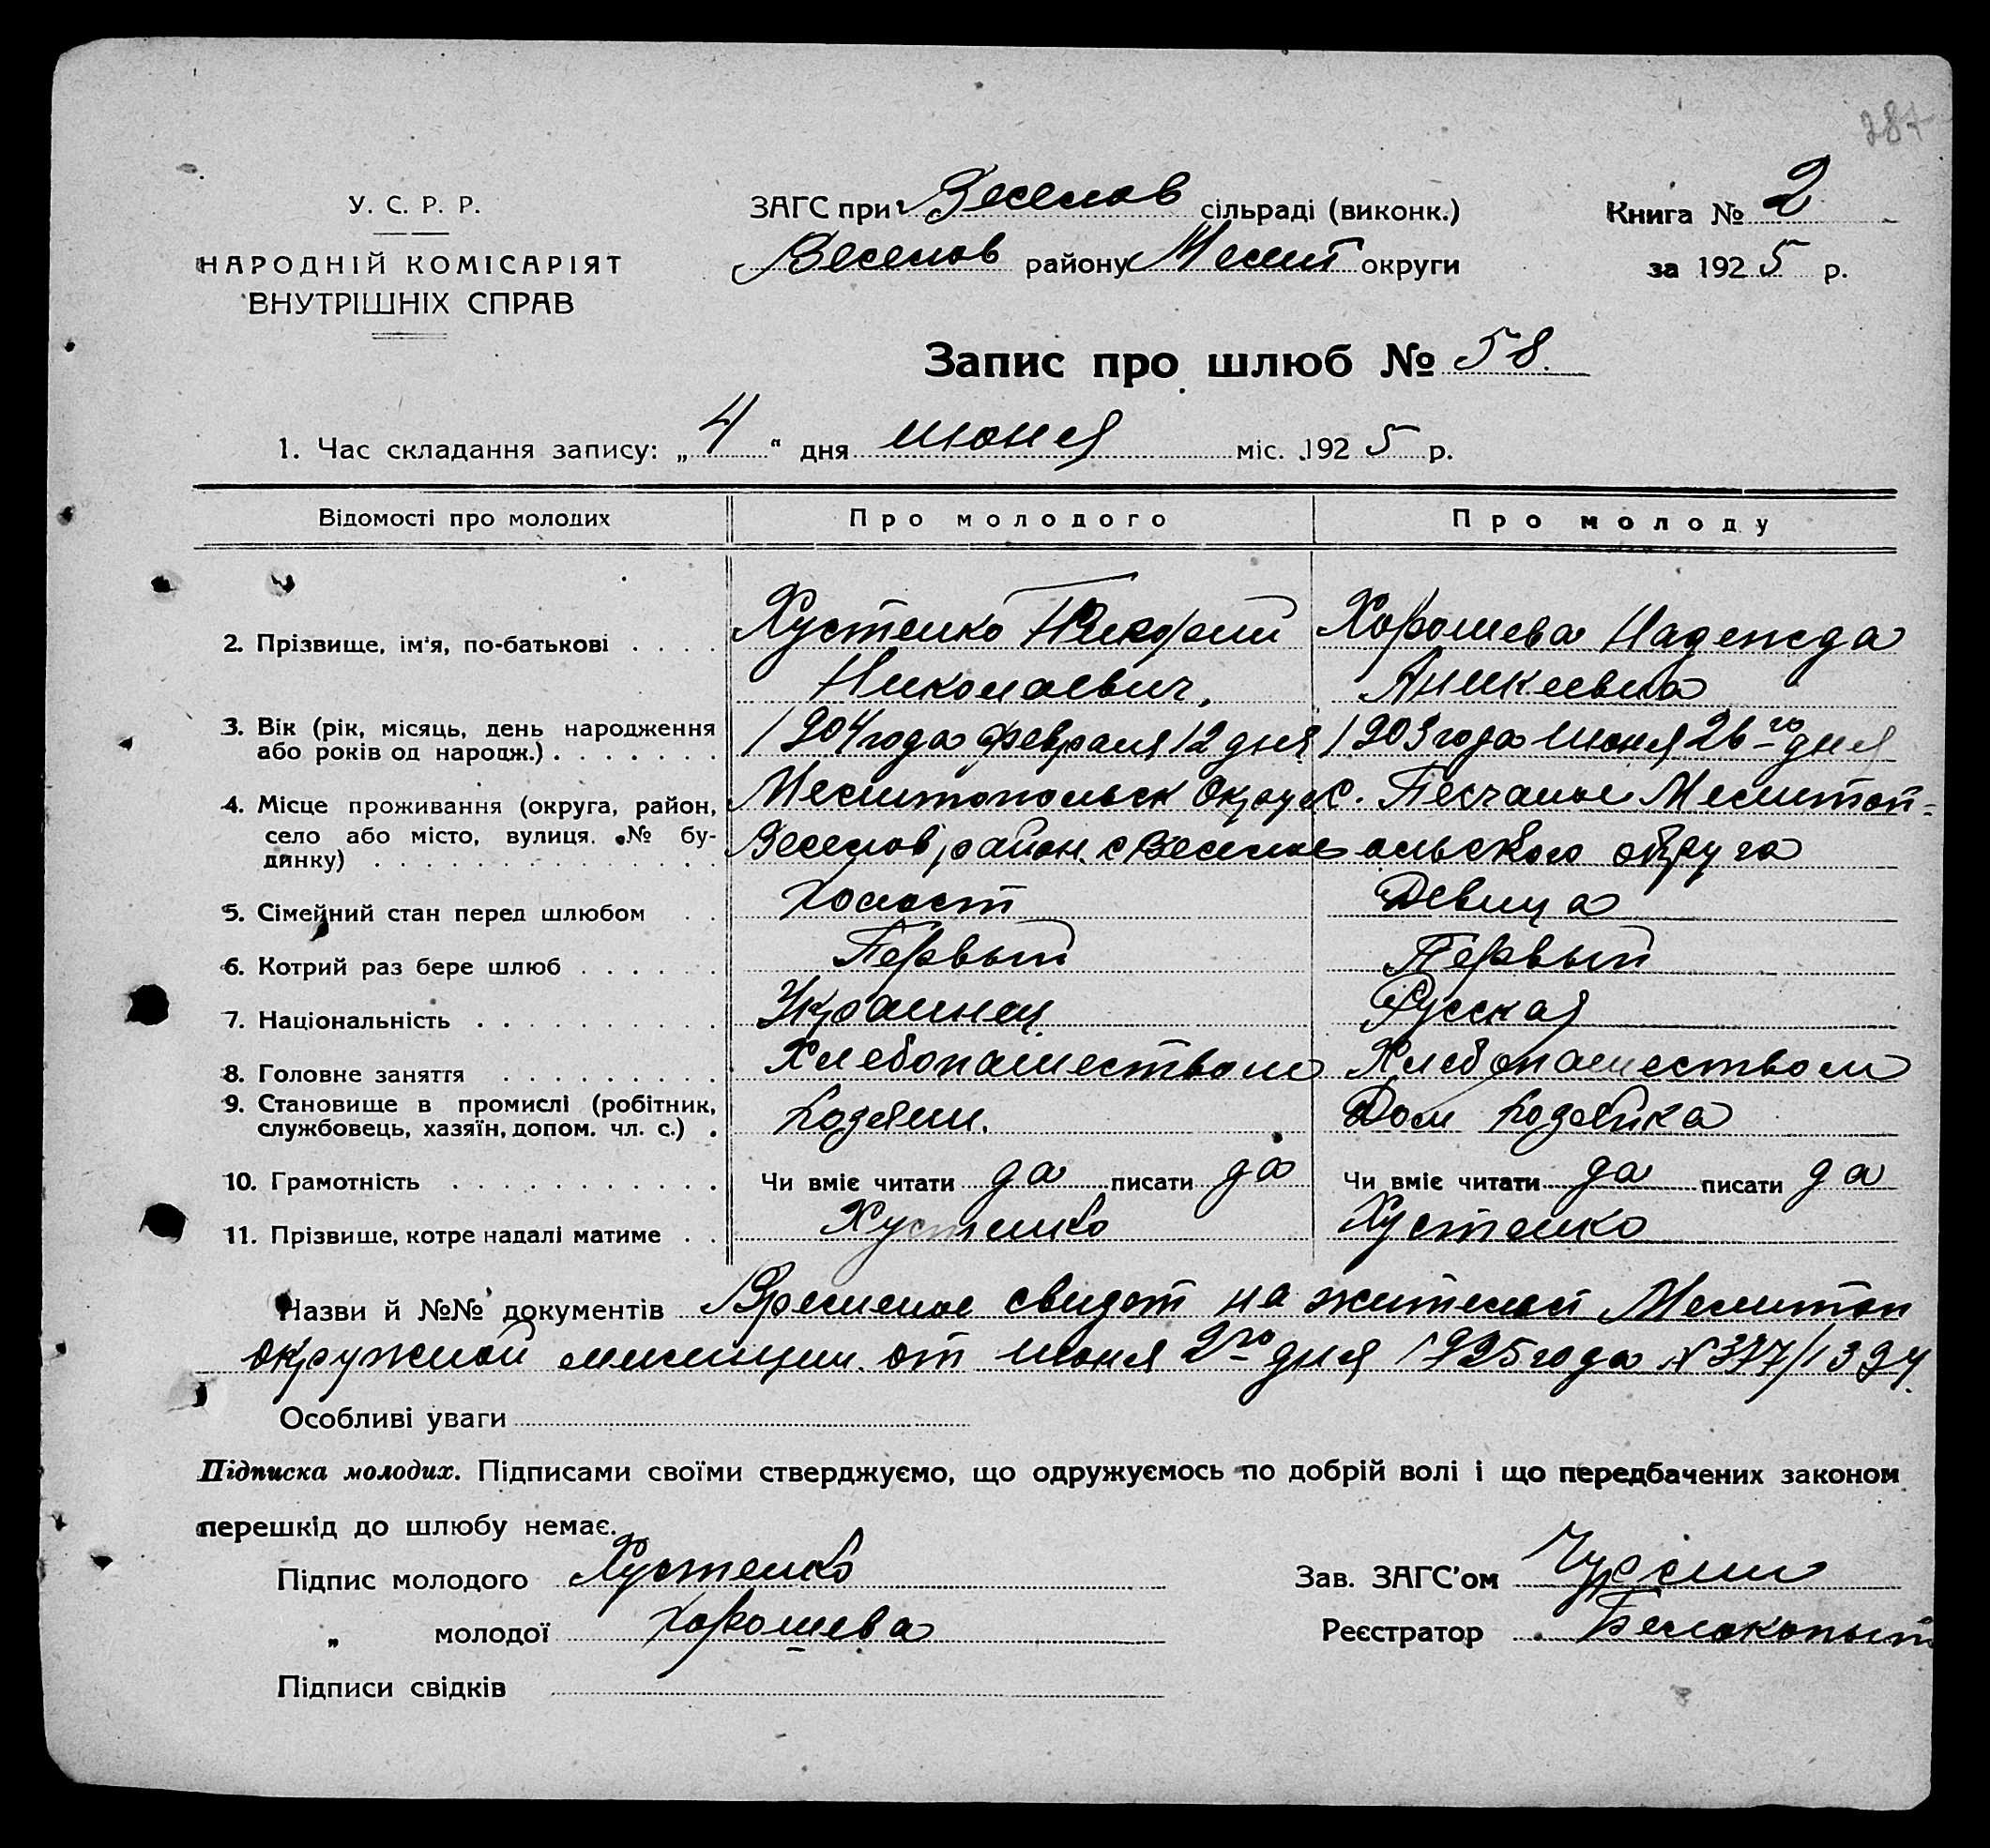 287
У. С. Р. Р.
НАРОДНІЙ КОМІСАРІЯТ
ВНУТРІШНІХ СПРАВ
ЗАГС при Веселов сільраді (виконк.)
Веселов району Мелит округи
Книга № 2
за 1925 р.
Запис про шлюб № 58.
1. Час складання запису: „4“ дня июня міс. 1925 р.
Відомості про молодих Про молодого Про молоду
2. Прізвище, ім'я, по-батькові . . . . Хустенко Никифорий Хорошева Надежда
Николаевич, Аникеевна
3. Вік (рік, місяць, день народження або років од народж.) . . . . . . . 1904 года февраля 12 дня 1903 года июня 26-го дня
4. Місце проживання (округа, район, Мелитопольск Округ с. Песчаное Мелитоп-
село або місто, вулиця, № будинку) . . . . . . . . . . . . . Веселов, район. с Веселое ольского округа
5. Сімейний стан перед шлюбом . . Холост Девица
6. Котрий раз бере шлюб . . . . . . Первый Первый
7. Національність . . . . . . . . . . Украинец Русская
8. Головне заняття . . . . . . . . . Хлебопашеством Хлебопашеством
9. Становище в промислі (робітник, службовець, хазяїн, допом. чл. с.) . Хозяин. Дом Хозяйка
10. Грамотність . . . . . . . . . . . Чи вміє читати да писати да Чи вміє читати да писати да
11. Прізвище, котре надалі матиме . . Хустенко Хустенко
Назви й №№ документів Временое свидет на жителей Мелитоп
окружной милиции от июня 2го дня 1925 года № 377/1394.
Особливі уваги
Підписка молодих. Підписами своїми стверджуємо, що одружуємось по добрій волі і що передбачених законом
перешкід до шлюбу немає.
Підпис молодого Хустенко Зав. ЗАГС'ом Чурсин
„ молодої Хорошева Реєстратор Белокопыт
Підписи свідків